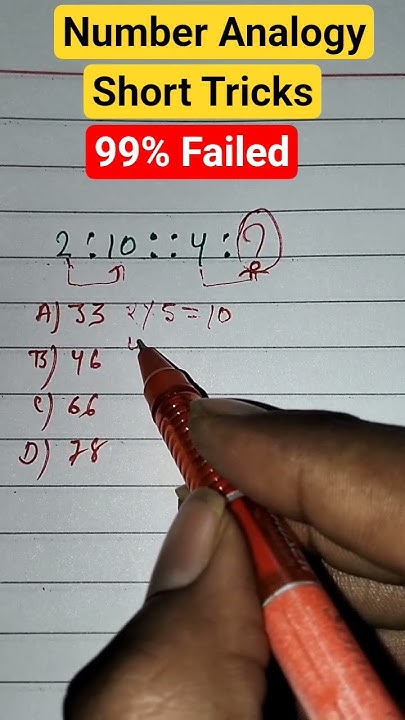 Number Analogy
Short Tricks
99% Failed
2 : 10 :: 4 : ?
A) 33 2×5=10
B) 46 4
C) 66
D) 78